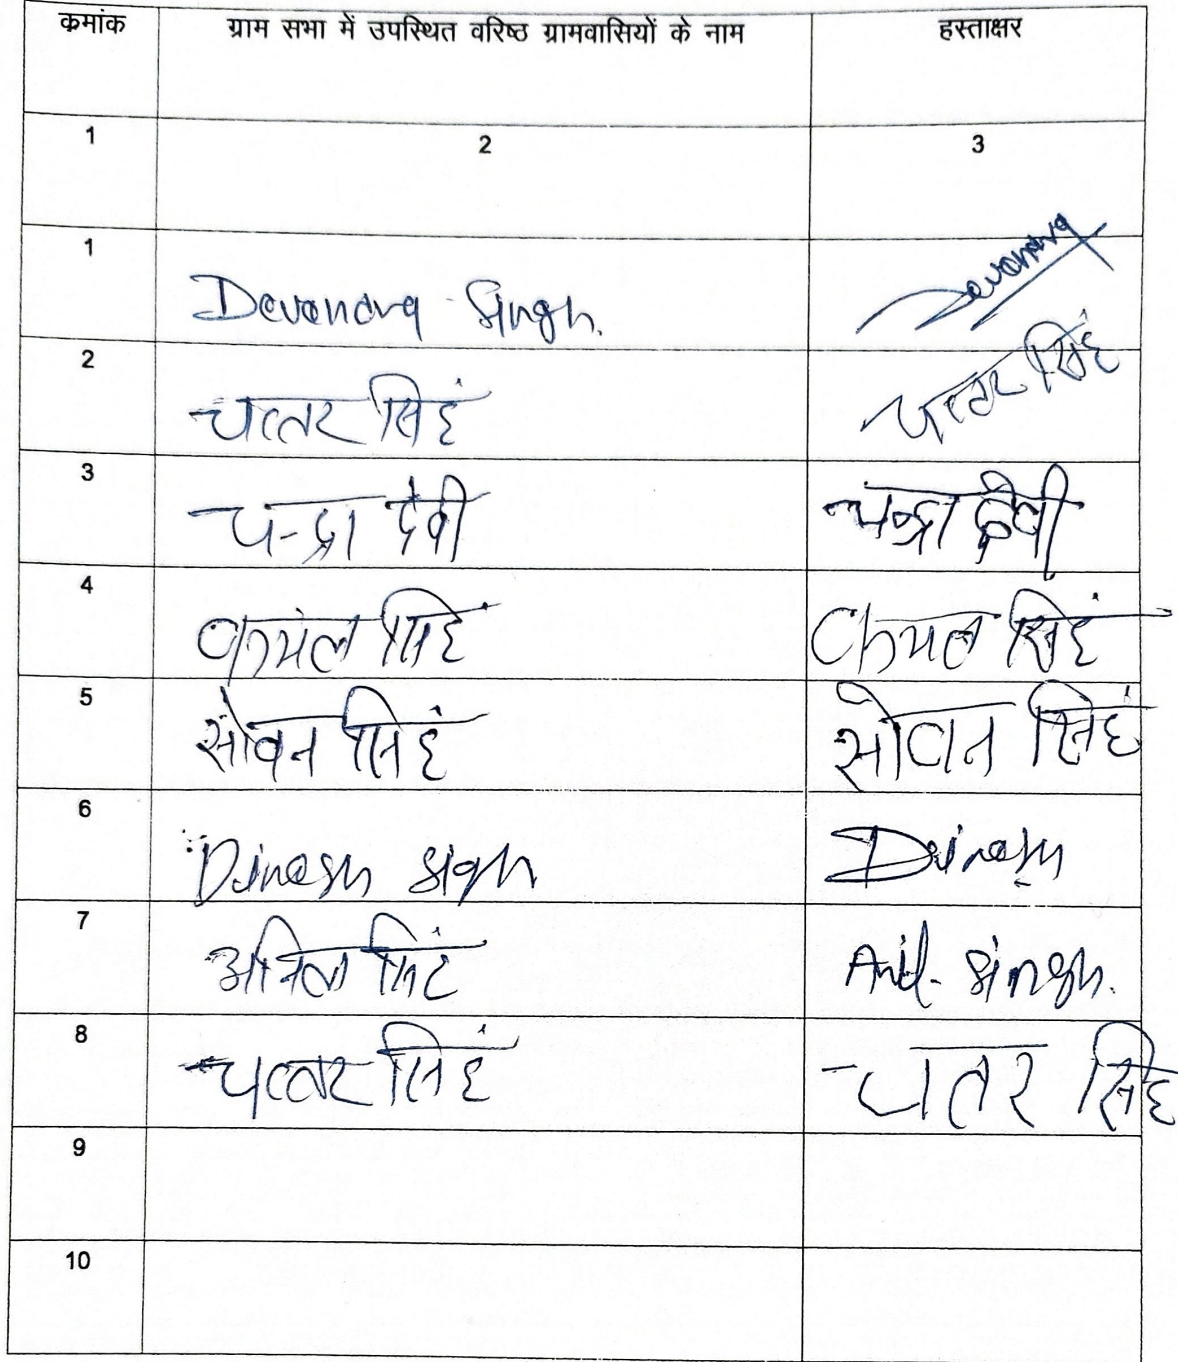 क्रमांक ग्राम सभा में उपस्थित वरिष्ठ ग्रामवासियों के नाम हस्ताक्षर
1 2 3
1 Devendra Singh. Devendra
2 चत्तर सिहं चत्तर सिहं
3 चन्द्रा देवी चन्द्रा देवी
4 कमल सिहं कमल सिहं
5 सोवन सिहं सोवन सिहं
6 Dinesh sigh Dinesh
7 अनिल सिहं Anil. singh.
8 चत्तर सिहं चतर सिहं
9
10